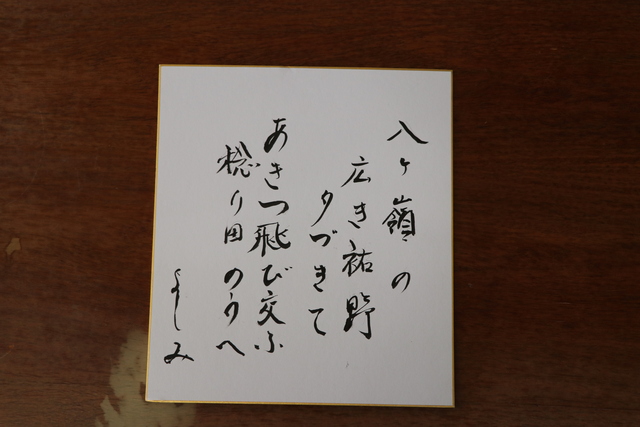 八ヶ嶺の
広き裾野
夕づきて
あきつ飛び交ふ
稔り田のうへ
よしみ